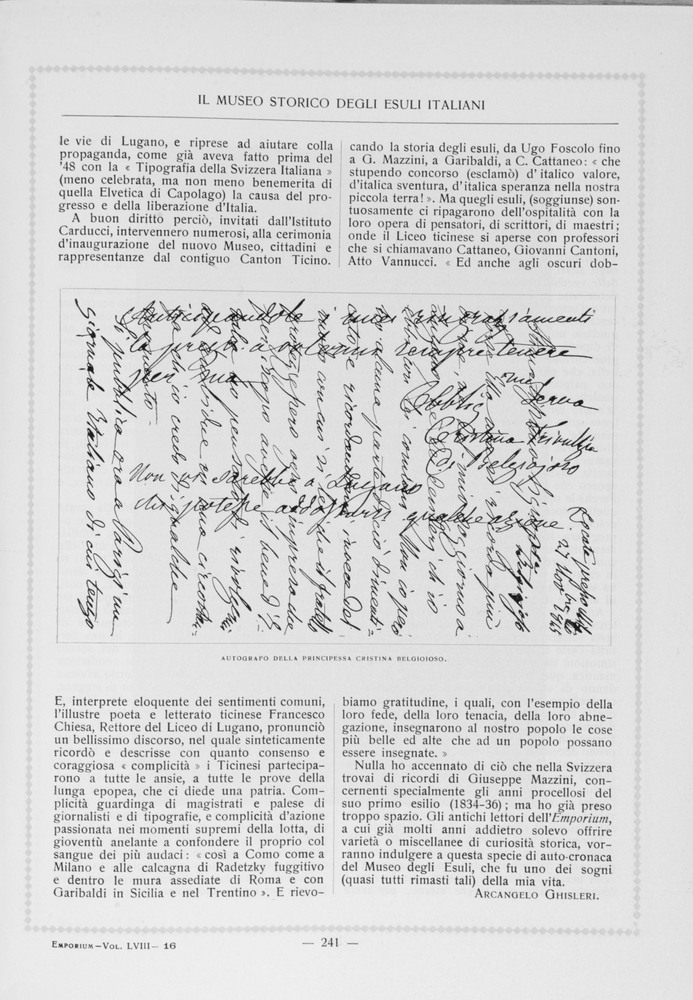 IL MUSEO STORICO DEGLI ESULI ITALIANI
le vie di Lugano, e riprese ad aiutare colla
propaganda, come già aveva fatto prima del
'48 con la « Tipografia della Svizzera Italiana »
(meno celebrata, ma non meno benemerita di
quella Elvetica di Capolago) la causa del pro-
gresso e della liberazione d'Italia.
A buon diritto perciò, invitati dall'Istituto
Carducci, intervennero numerosi, alla cerimonia
d'inaugurazione del nuovo Museo, cittadini e
rappresentanze dal contiguo Canton Ticino.
cando la storia degli esuli, da Ugo Foscolo fino
a G. Mazzini, a Garibaldi, a C. Cattaneo: « che
stupendo concorso (esclamò) d' italico valore,
d'italica sventura, d'italica speranza nella nostra
piccola terra! ». Ma quegli esuli, (soggiunse) son-
tuosamente ci ripagarono dell'ospitalità con la
loro opera di pensatori, di scrittori, di maestri;
onde il Liceo ticinese si aperse con professori
che si chiamavano Cattaneo, Giovanni Cantoni,
Atto Vannucci. « Ed anche agli oscuri dob-
Anticipandole i miei ringraziamenti
la prego a volermi sempre tenere
per sua
serva
Cristina Trivulzio
di Belgiojoso
Non vi sarebbe a Lugano
chi potesse addossarsi qualche azione
Si pubblica ora a Parigi un
giornale Italiano di cui tengo
AUTOGRAFO DELLA PRINCIPESSA CRISTINA BELGIOIOSO.
E, interprete eloquente dei sentimenti comuni,
l'illustre poeta e letterato ticinese Francesco
Chiesa, Rettore del Liceo di Lugano, pronunciò
un bellissimo discorso, nel quale sinteticamente
ricordò e descrisse con quanto consenso e
coraggiosa « complicità » i Ticinesi partecipa-
rono a tutte le ansie, a tutte le prove della
lunga epopea, che ci diede una patria. Com-
plicità guardinga di magistrati e palese di
giornalisti e di tipografie, e complicità d'azione
passionata nei momenti supremi della lotta, di
gioventù anelante a confondere il proprio col
sangue dei più audaci: « così a Como come a
Milano e alle calcagna di Radetzky fuggitivo
e dentro le mura assediate di Roma e con
Garibaldi in Sicilia e nel Trentino ». E rievo-
biamo gratitudine, i quali, con l'esempio della
loro fede, della loro tenacia, della loro abne-
gazione, insegnarono al nostro popolo le cose
più belle ed alte che ad un popolo possano
essere insegnate. »
Nulla ho accennato di ciò che nella Svizzera
trovai di ricordi di Giuseppe Mazzini, con-
cernenti specialmente gli anni procellosi del
suo primo esilio (1834-36); ma ho già preso
troppo spazio. Gli antichi lettori dell'Emporium,
a cui già molti anni addietro solevo offrire
varietà o miscellanee di curiosità storica, vor-
ranno indulgere a questa specie di auto-cronaca
del Museo degli Esuli, che fu uno dei sogni
(quasi tutti rimasti tali) della mia vita.
ARCANGELO GHISLERI.
EMPORIUM—VOL. LVIII— 16
— 241 —